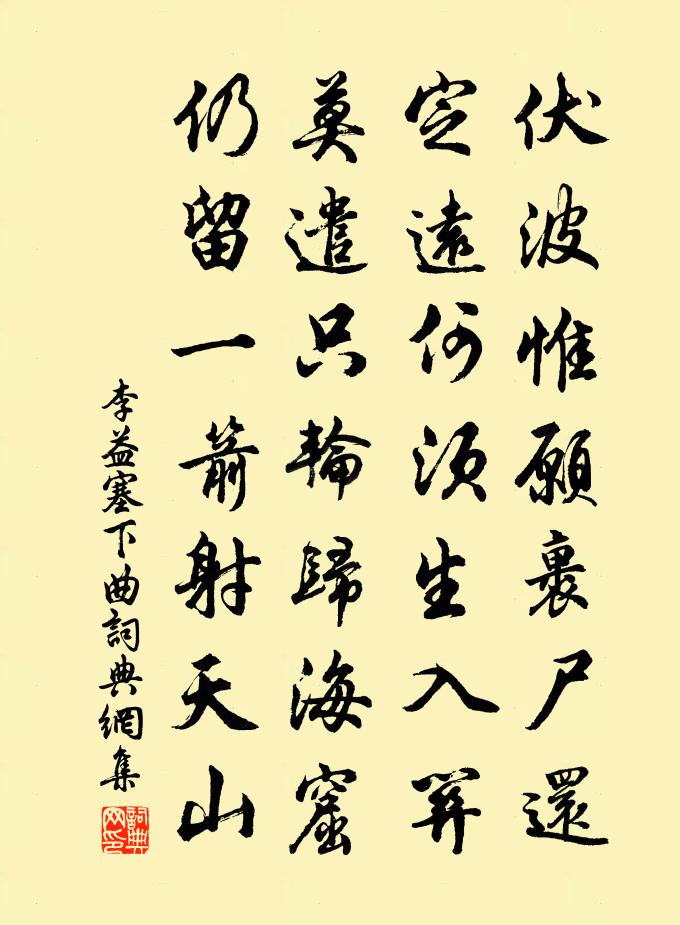 伏波惟願裹尸還
定遠何須生入關
莫遣只輪歸海窟
仍留一箭射天山
李益塞下曲詞典網集
詞典網印